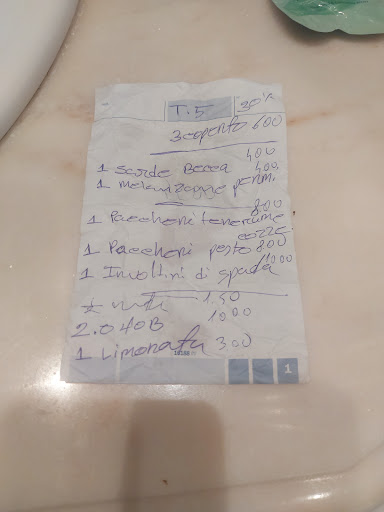 T. 5 30%
3 coperto 600
1 sarde Becca 400
1 melanzagne parm. 400
1 Paccheni tenerume 800
cozze.
1 Paccheni pesto 800
1 Involtini di spada 1000
1,50
2.040B 1000
1 Limonata 300
1